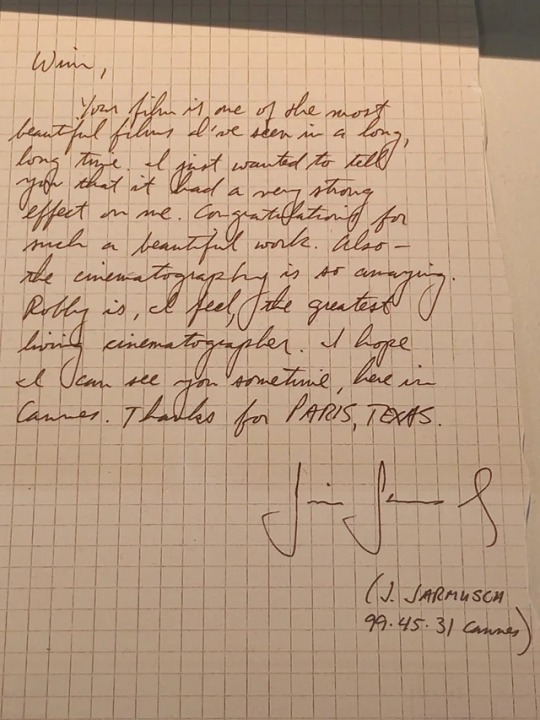 Wim,
Your film is one of the most
beautiful films I've seen in a long,
long time. I just wanted to tell
you that it had a very strong
effect on me. Congratulations for
such a beautiful work. Also –
the cinematography is so amazing.
Robby is, I feel, the greatest
living cinematographer. I hope
I can see you sometime, here in
Cannes. Thanks for PARIS, TEXAS.
Jim Jarmusch
(J. JARMUSCH
99·45·31 Cannes)